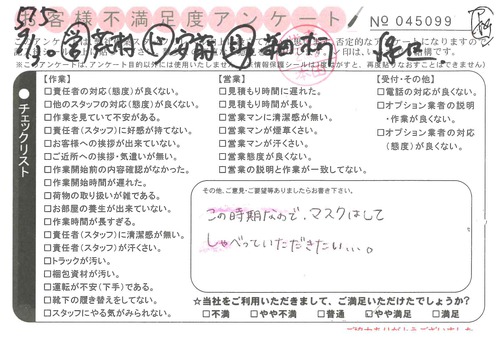 お客様不満足度アンケート
№ 045099
【作業】
□責任者の対応(態度)が良くない。
□他のスタッフの対応(態度)が良くない。
□作業を見ていて不安がある。
□責任者(スタッフ)に好感が持てない。
□お客様への挨拶が出来ていない。
□ご近所への挨拶・気遣いが無い。
□作業開始前の内容確認がなかった。
□作業開始時間が遅れた。
□荷物の取り扱いが雑である。
□お部屋の養生が出来ていない。
□作業時間が長すぎる。
□責任者(スタッフ)に清潔感が無い。
□責任者(スタッフ)が汗くさい。
□トラックが汚い。
□梱包資材が汚い。
□運転が不安(下手)である。
□靴下の履き替えをしてない。
□スタッフにやる気がみられない。
【営業】
□見積もり時間に遅れた。
□見積もり時間が長い。
□営業マンに清潔感が無い。
□営業マンが煙草くさい。
□営業マンが汗くさい。
□営業態度が良くない。
□営業の説明と作業が一致してない。
【受付・その他】
□電話の対応が良くない。
□オプション業者の説明
・作業が良くない。
□オプション業者の対応
(態度)が良くない。
チェックリスト
その他、ご意見・ご要望等ありましたらお書き下さい。
この時期なので、マスクはして
しゃべっていただきたい…。
☆当社をご利用いただきまして、ご満足いただけたでしょうか?
□不満 □やや不満 □普通 ☑やや満足 □満足